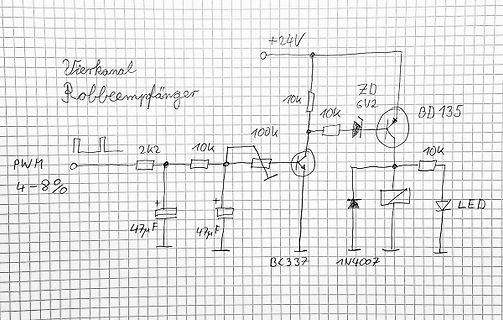 +24V
Vierkanal
Robbeempfänger
ZD
6V2
BD135
10k
10k
100k
PWM
2k2
10k
10k
4-8%
LED
47µF
47µF
BC337
1N4007